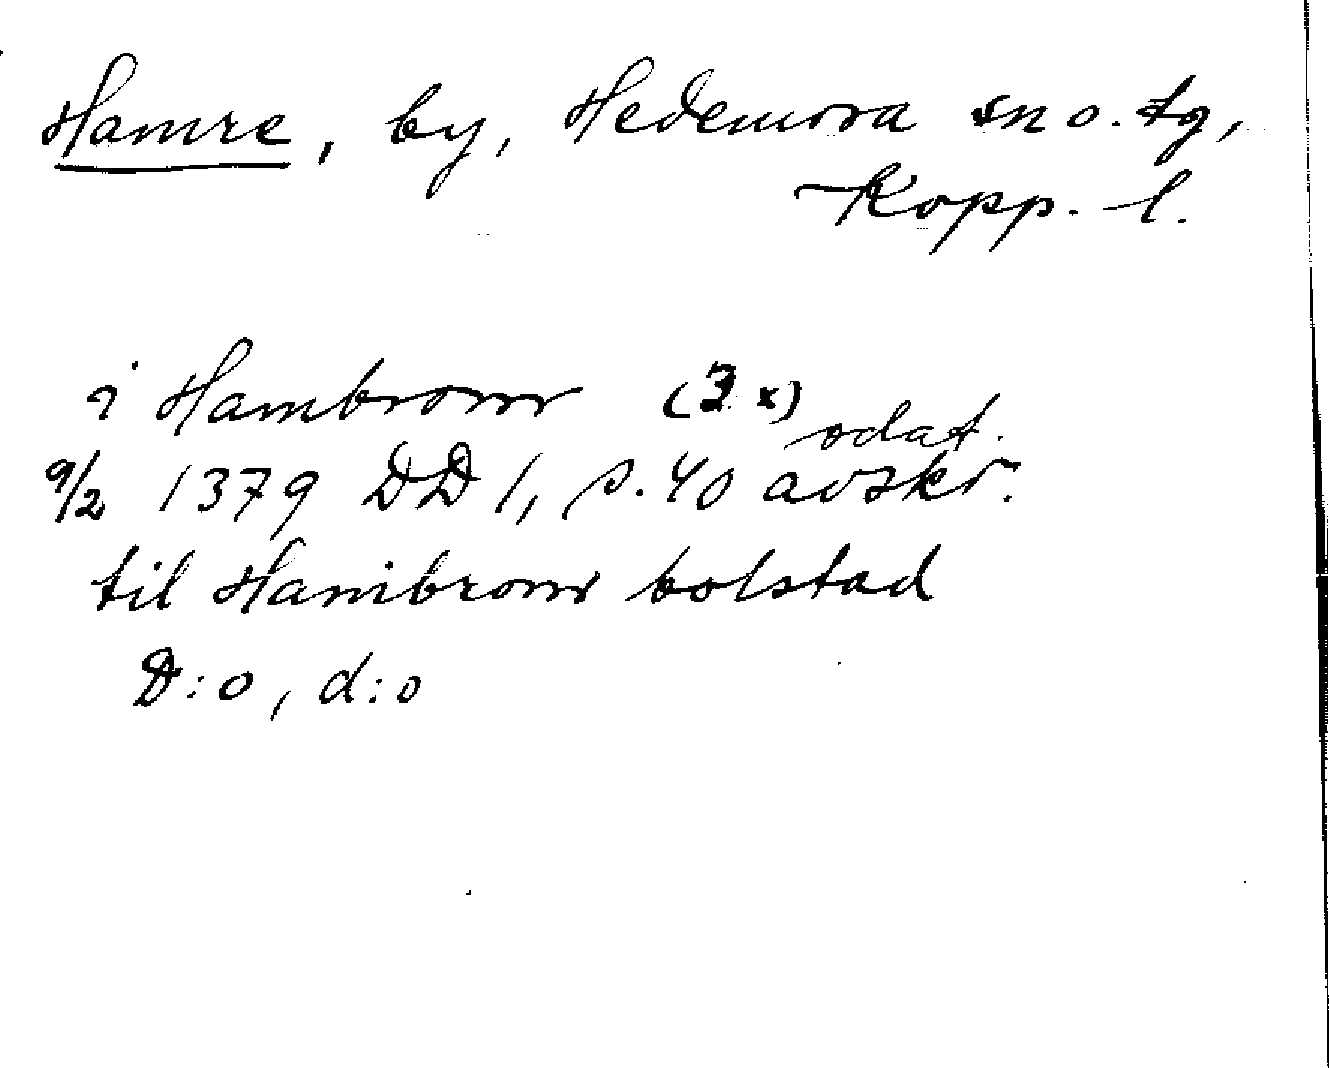 Hamre, by, Hedemora sn o. tg,
Kopp. l.
i Hambrom (3 x)
odat.
9/2 1379 DD 1, s. 40 avskr.
til Hambrom bolstad
D:o, d:o